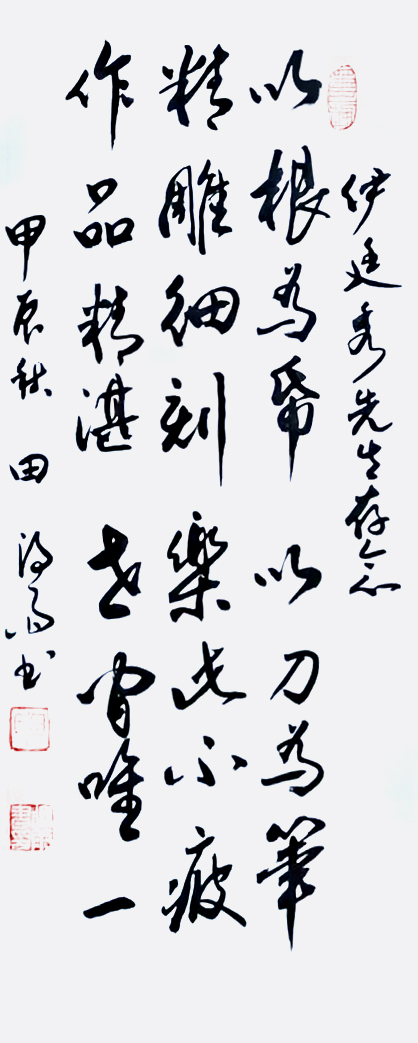 伊廷秀先生存念
以根為帋 以刀為筆
精雕细刻 樂此不疲
作品精湛 世间唯一
甲辰秋 田